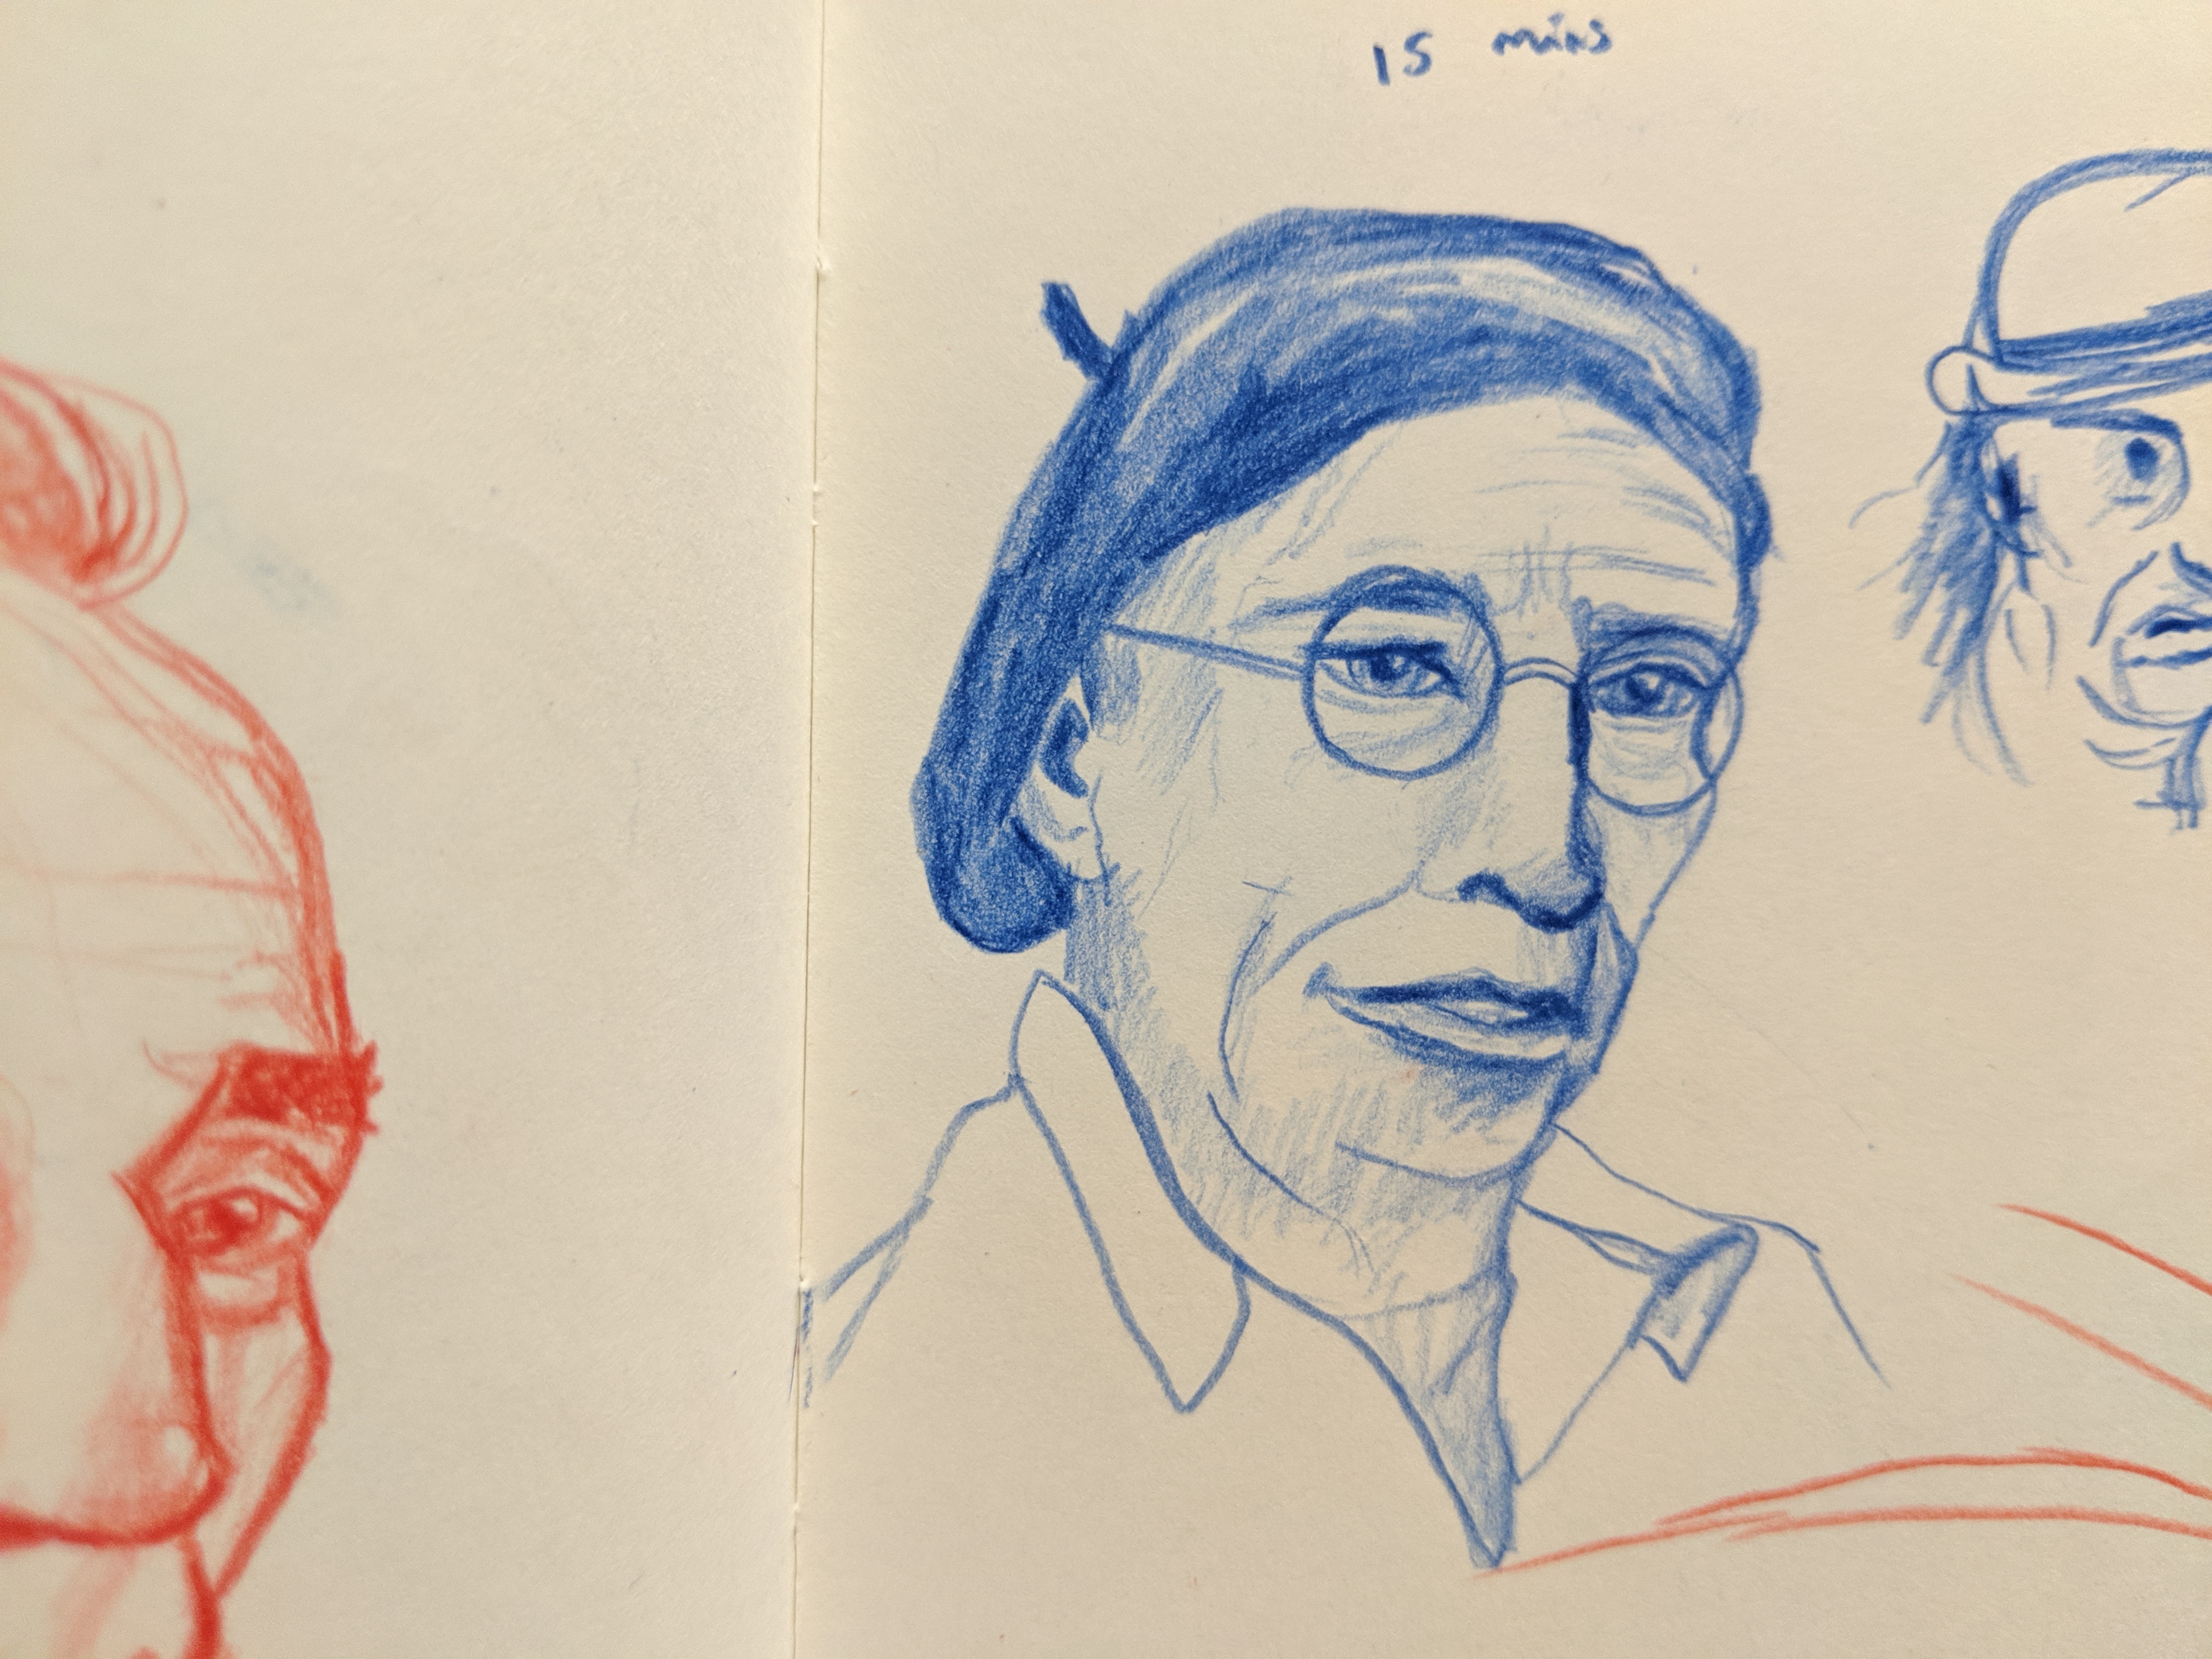 15 mins